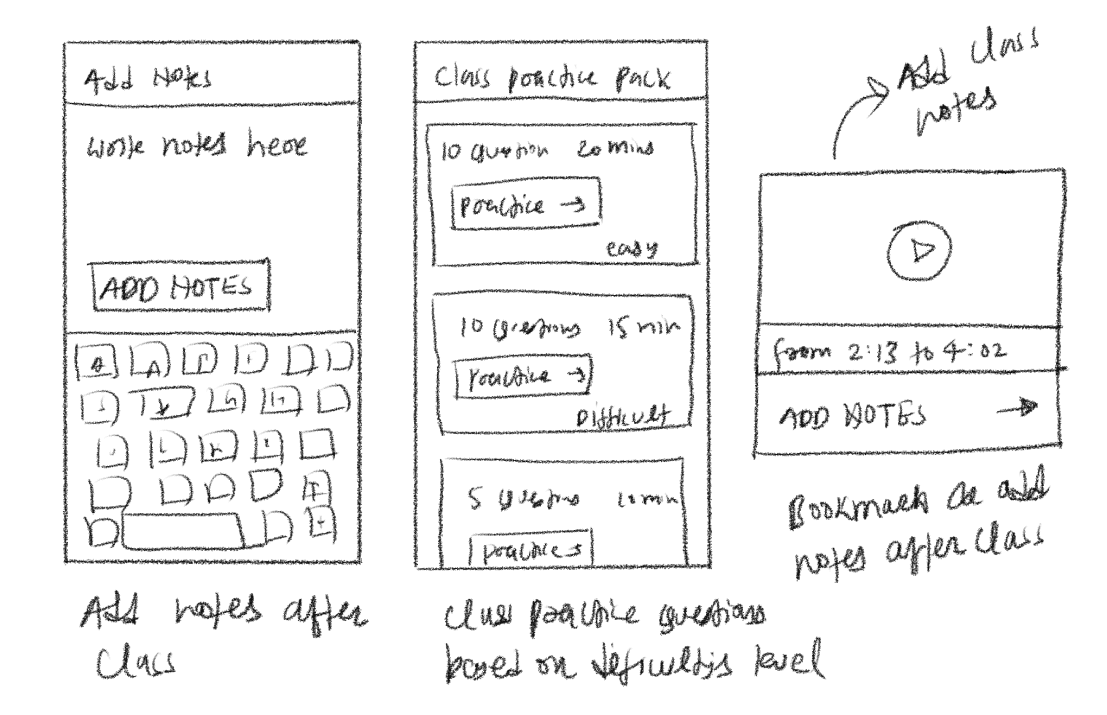 Add Notes
Write notes here
ADD NOTES
Add notes after
Class
Class practice pack
10 question 20 mins
Practice →
easy
10 questions 15 min
Practice →
Difficult
5 questions 10 min
practice →
class practice questions
based on
level
Add Class
notes
from 2:13 to 4:02
ADD NOTES →
Bookmark or add
notes after class